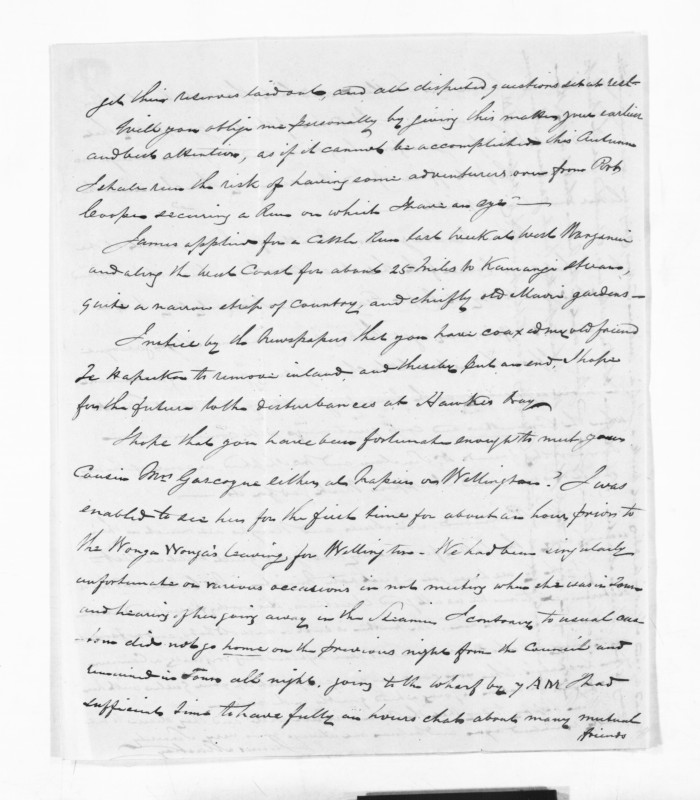 get their reserves laid out, and all disputed questions set at rest -
Will you oblige me personally by giving this matter your earliest
and best attention, as if it cannot be accomplished this Autumn
I shall run the risk of having some adventurers over from Port
Cooper securing a Run on which I have an eye -
James applied for a Cattle Run last week at West Wanganui
and along the West Coast for about 25 Miles to Kaurangi stream,
quite a narrow strip of Country, and chiefly old Maori gardens -
I notice by the Newspapers that you have coaxed my old friend
Te Hapuku to remove inland, and thereby put an end, I hope
for the future to the disturbances at Hawkes Bay
I hope that you have been fortunate enough to meet your
Cousin Mrs Gascoyne either at Napier or Wellington? I was
enabled to see her for the first time for about an hour, prior to
the Wonga Wonga's leaving for Wellington - We had been singularly
unfortunate on various occasions in not meeting when she was in Town
and hearing of her going away in the Steamer I contrary to usual cus
-tom did not go home on the previous night from the Council and
remained in Town all night, going to the wharf by 7 AM I had
sufficient time to have fully an hours chat about many mutual
friends